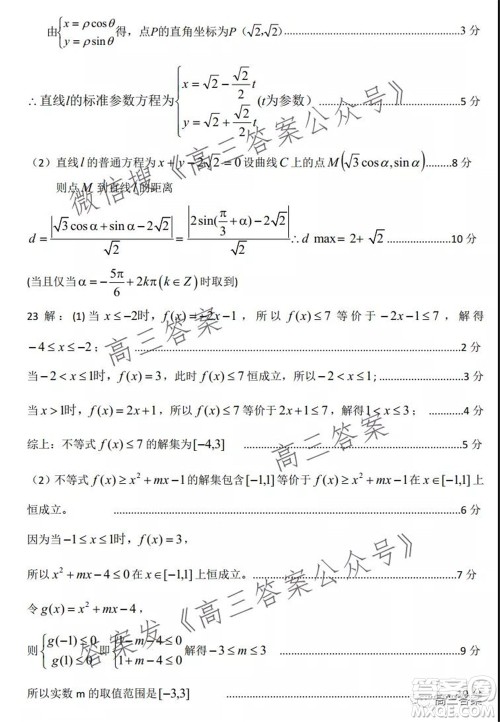 由{x = ρcosθ y = ρsinθ 得，点P的直角坐标为P（√2,√2）……………………3 分
∴直线l的标准参数方程为{x = √2 − (√2/2)t y = √2 + (√2/2)t (t为参数) ……………………5 分
（2）直线 l 的普通方程为 x + y − 2√2 = 0 设曲线 C 上的点 M(√3cosα,sinα)………8 分
则点 M 到直线 l 的距离
d = |√3cosα + sinα − 2√2|/√2 = |2sin(π/3 + α) − 2√2|/√2 ∴ d max= 2+ √2 ……………10 分
(当且仅当 α = −5π/6 + 2kπ(k ∈ Z) 时取到)
23 解：(1)当 x ≤ −2时，f(x)=−2x−1，所以 f(x) ≤ 7 等价于 −2x−1 ≤ 7，解得
−4 ≤ x ≤ −2；……………………2 分
当 −2 < x ≤ 1时，f(x) = 3，此时 f(x) ≤ 7 恒成立，所以；……………………3 分
当 x > 1时，f(x) = 2x+1，所以 f(x) ≤ 7 等价于 2x+1 ≤ 7，解得 1 < x ≤ 3；………4 分
综上：不等式 f(x) ≤ 7 的解集为[−4,3] ……………………5 分
（2）不等式 f(x) ≥ x² + mx −1 的解集包含[−1,1] 等价于 f(x) ≥ x² + mx −1 在 x ∈ [−1,1] 上
恒成立。……………………6 分
因为当 −1 ≤ x ≤ 1时，f(x) = 3，
所以 x² + mx − 4 ≤ 0 在 x ∈ [−1,1] 上恒成立。……………………7 分
令 g(x) = x² + mx − 4，
则{g(−1) ≤ 0 g(1) ≤ 0 即{1 − m − 4 ≤ 0 1 + m − 4 ≤ 0 解得 −3 ≤ m ≤ 3 ……………………9 分
所以实数 m 的取值范围是[−3,3] ……………………
微信搜《高三答案公众号》
高三答案
高三答案
答案发《高三答案公众号》
高三答案